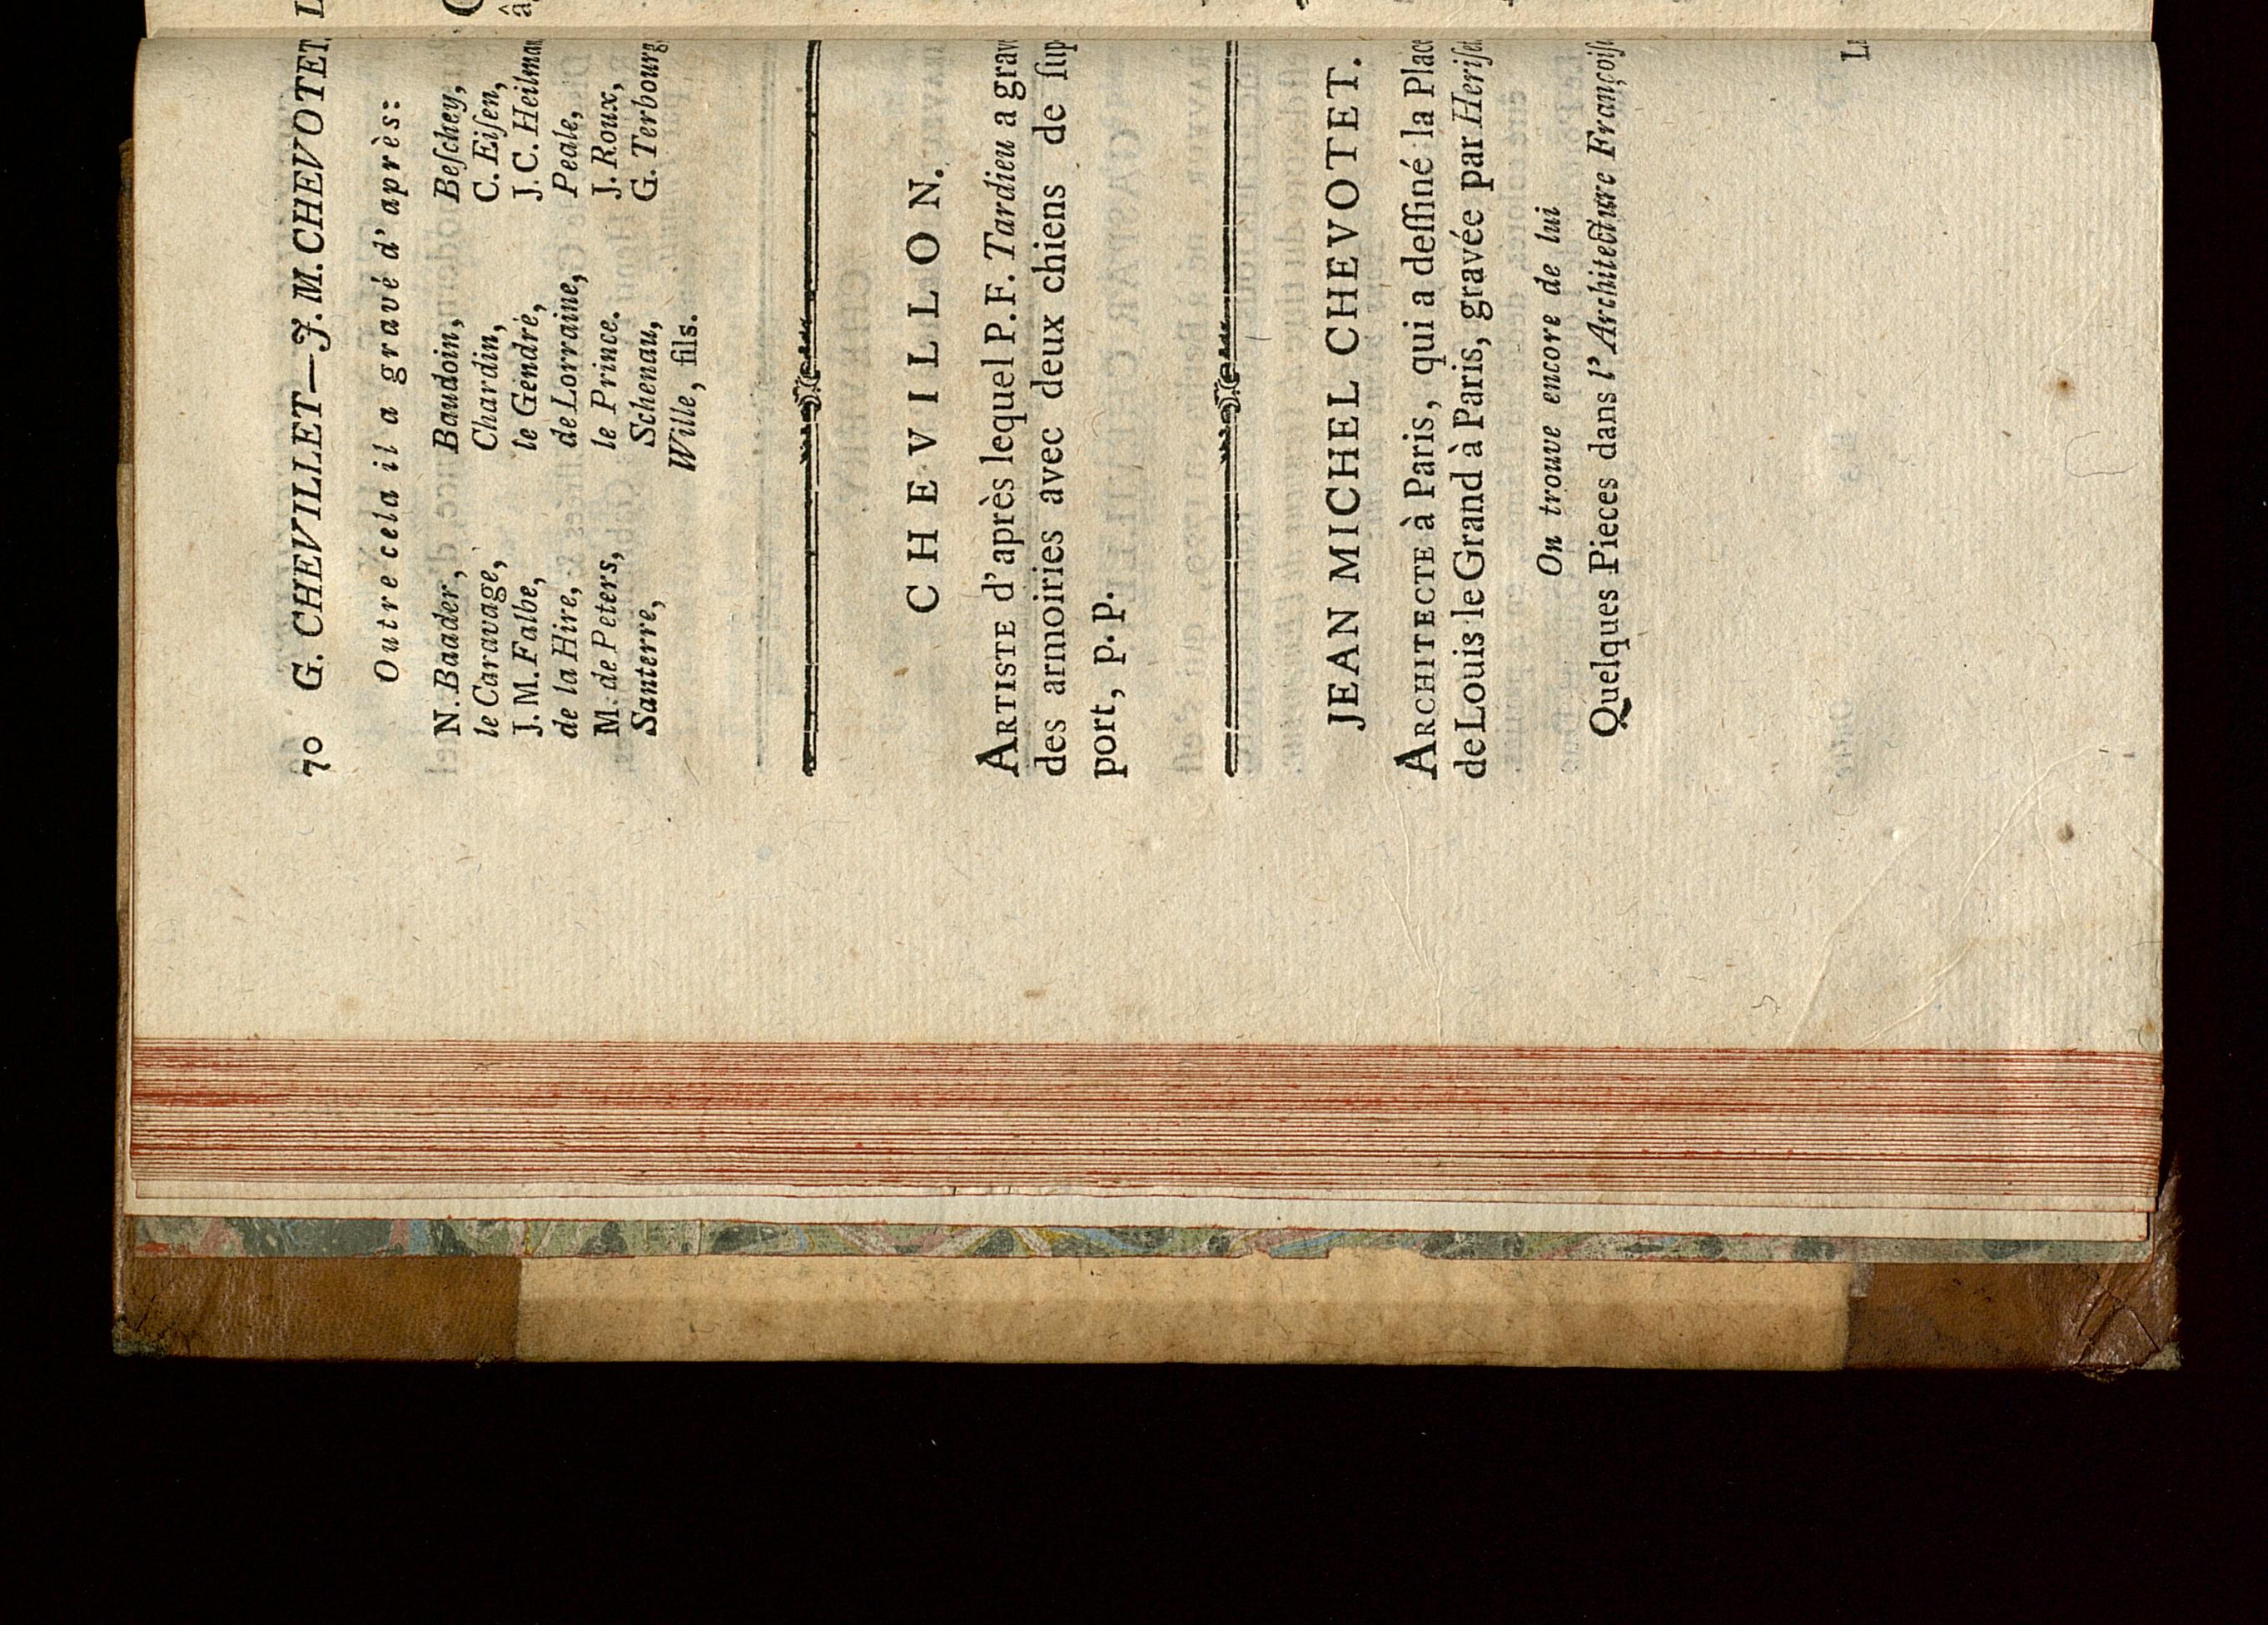 70 G. CHEVILLET—J. M. CHEVOTET.
Outre cela il a gravé d'après:
N. Baader, Baudoin, Beſchey,
le Caravage, Chardin, C. Eiſen,
J. M. Falbe, le Gendre, J. C. Heilman
de la Hire, de Lorraine, Peale,
M. de Peters, le Prince. J. Roux,
Santerre, Schenau, G. Terbourg
Wille, fils.
CHEVILLON.
ARTISTE d'après lequel P. F. Tardieu a grav
des armoiries avec deux chiens de ſup
port, p. p.
JEAN MICHEL CHEVOTET.
ARCHITECTE à Paris, qui a deſſiné la Place
de Louis le Grand à Paris, gravée par Heriſet
On trouve encore de lui
Quelques Pieces dans l'Architecture Françoiſ